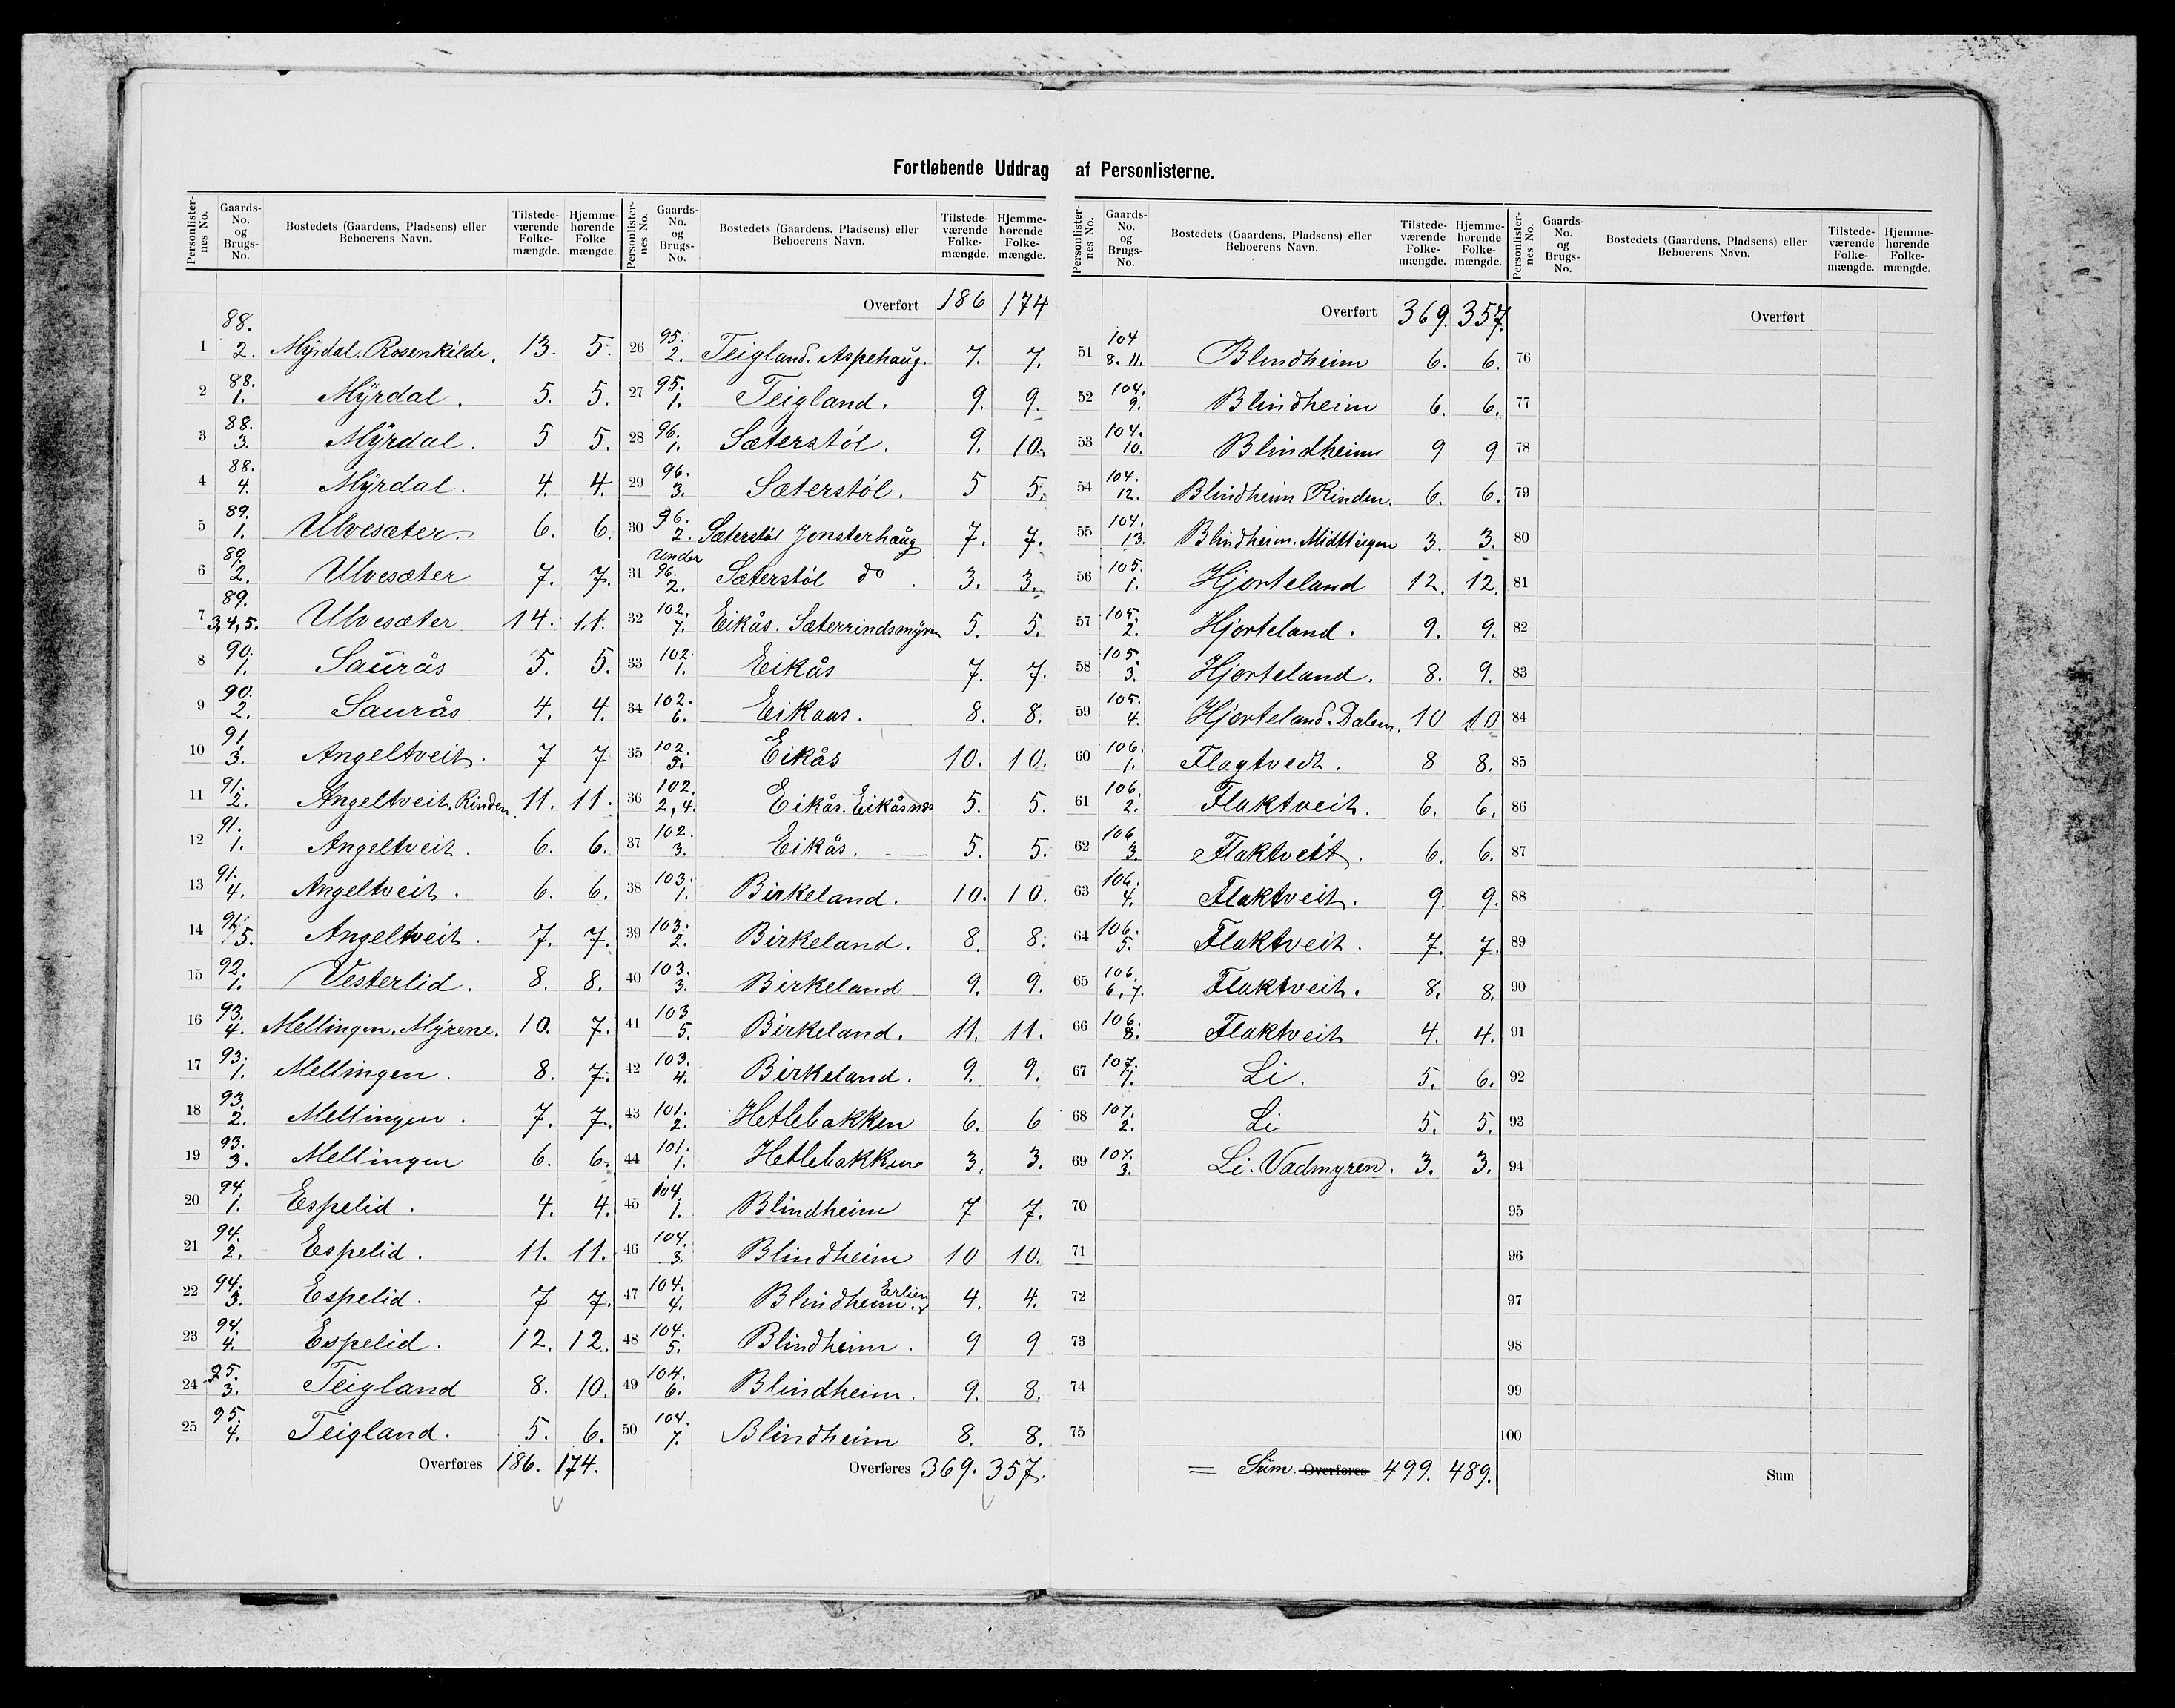 Fortløbende Uddrag af Personlisterne.
Personlister-nes No. | Gaards-No. og Brugs-No. | Bostedets (Gaardens, Pladsens) eller Beboerens Navn. | Tilstede-værende Folke-mængde. | Hjemme-hørende Folke mængde.
1 | 88. 2. | Mÿrdal. Rosenkilde. | 13. | 5.
2 | 88. 1. | Mÿrdal. | 5. | 5.
3 | 88. 3. | Mÿrdal. | 5 | 5.
4 | 88. 4. | Mÿrdal. | 4. | 4.
5 | 89. 1. | Ulvesæter. | 6. | 6.
6 | 89. 2. | Ulvesæter | 7. | 7.
7 | 89. 3,4,5. | Ulvesæter | 14. | 11.
8 | 90. 1. | Saurås | 5. | 5.
9 | 90. 2. | Saurås | 4. | 4.
10 | 91. 3. | Angeltveit. | 7 | 7
11 | 91. 2. | Angeltveit. Rinden. | 11. | 11.
12 | 91. 1. | Angeltveit. | 6. | 6.
13 | 91. 4. | Angeltveit. | 6. | 6.
14 | 91. 5. | Angeltveit. | 7. | 7.
15 | 92. 1. | Vesterlid. | 8. | 8.
16 | 93. 4. | Mellingen. Mÿrene. | 10. | 7.
17 | 93. 1. | Mellingen. | 8. | 7.
18 | 93. 2. | Mellingen. | 7. | 7.
19 | 93. 3. | Mellingen | 6. | 6.
20 | 94. 1. | Espelid. | 4. | 4.
21 | 94. 2. | Espelid. | 11. | 11.
22 | 94. 3. | Espelid. | 7 | 7.
23 | 94. 4. | Espelid. | 12. | 12.
24 | 95. 3. | Teigland | 8. | 10.
25 | 95. 4. | Teigland. | 5. | 6.
Overføres 186. 174.
Personlister-nes No. | Gaards-No. og Brugs-No. | Bostedets (Gaardens, Pladsens) eller Beboerens Navn. | Tilstede-værende Folke-mængde. | Hjemme-hørende Folke-mængde.
Overført 186 174
26 | 95. 2. | Teigland. Aspehaug. | 7. | 7.
27 | 95. 1. | Teigland. | 9. | 9.
28 | 96. 1. | Sæterstøl. | 9. | 10.
29 | 96. 3. | Sæterstøl. | 5 | 5.
30 | 96. 2. | Sæterstøl Jonsterhaug | 7. | 7.
31 | under 96. 2. | Sæterstøl do. | 3. | 3.
32 | 102. 7. | Eikås. Sæterrindsmÿren | 5. | 5.
33 | 102. 1. | Eikås | 7. | 7.
34 | 102. 6. | Eikaas. | 8. | 8.
35 | 102. 5. | Eikås | 10. | 10.
36 | 102. 2,4. | Eikås. Eikåsnæs | 5. | 5.
37 | 102. 3. | Eikås. | 5. | 5.
38 | 103. 1. | Birkeland. | 10. | 10.
39 | 103. 2. | Birkeland. | 8. | 8.
40 | 103. 3. | Birkeland | 9. | 9.
41 | 103 5. | Birkeland. | 11. | 11.
42 | 103. 4. | Birkeland. | 9. | 9.
43 | 101. 2. | Hetlebakken | 6. | 6
44 | 101. 1. | Hetlebakken | 3. | 3.
45 | 104. 1. | Blindheim | 7 | 7.
46 | 104. 3. | Blindheim | 10 | 10.
47 | 104. 4. | Blindheim. Erlien | 4. | 4.
48 | 104. 5. | Blindheim. | 9 | 9
49 | 104. 6. | Blindheim. | 9. | 8.
50 | 104. 7. | Blindheim | 8. | 8.
Overføres 369. 357.
Personlister-nes No. | Gaards-No. og Brugs-No. | Bostedets (Gaardens, Pladsens) eller Beboerens Navn. | Tilstede-værende Folke-mængde. | Hjemme-hørende Folke-mængde.
Overført 369. 357.
51 | 104 8. 11. | Blindheim | 6. | 6.
52 | 104. 9. | Blindheim | 6. | 6.
53 | 104. 10. | Blindheim | 9 | 9
54 | 104. 12. | Blindheim Rinden. | 6. | 6.
55 | 104. 13. | Blindheim. | 3. | 3.
56 | 105. 1. | Hjorteland | 12. | 12.
57 | 105. 2. | Hjorteland. | 9. | 9.
58 | 105. 3. | Hjorteland. | 8. | 9.
59 | 105. 4. | Hjorteland. Dalen. | 10 | 10
60 | 106. 1. | Flagtvedt. | 8 | 8.
61 | 106. 2. | Flaktveit. | 6. | 6.
62 | 106 3. | Flaktveit. | 6. | 6.
63 | 106. 4. | Flaktveit. | 9. | 9.
64 | 106. 5. | Flaktveit. | 7. | 7.
65 | 106. 6,7. | Flaktveit. | 8. | 8.
66 | 106. 8. | Flaktveit | 4. | 4.
67 | 107. 1. | Li. | 5. | 6.
68 | 107. 2. | Li | 5. | 5.
69 | 107. 3. | Li. Vadmyren. | 3. | 3.
70
71
72
73
74
75
= Sum. Overføres 499. 489.
Personlister-nes No. | Gaards-No. og Brugs-No. | Bostedets (Gaardens, Pladsens) eller Beboerens Navn. | Tilstede-værende Folke-mængde. | Hjemme-hørende Folke-mængde.
Overført
76
77
78
79
80
81
82
83
84
85
86
87
88
89
90
91
92
93
94
95
96
97
98
99
100
Sum